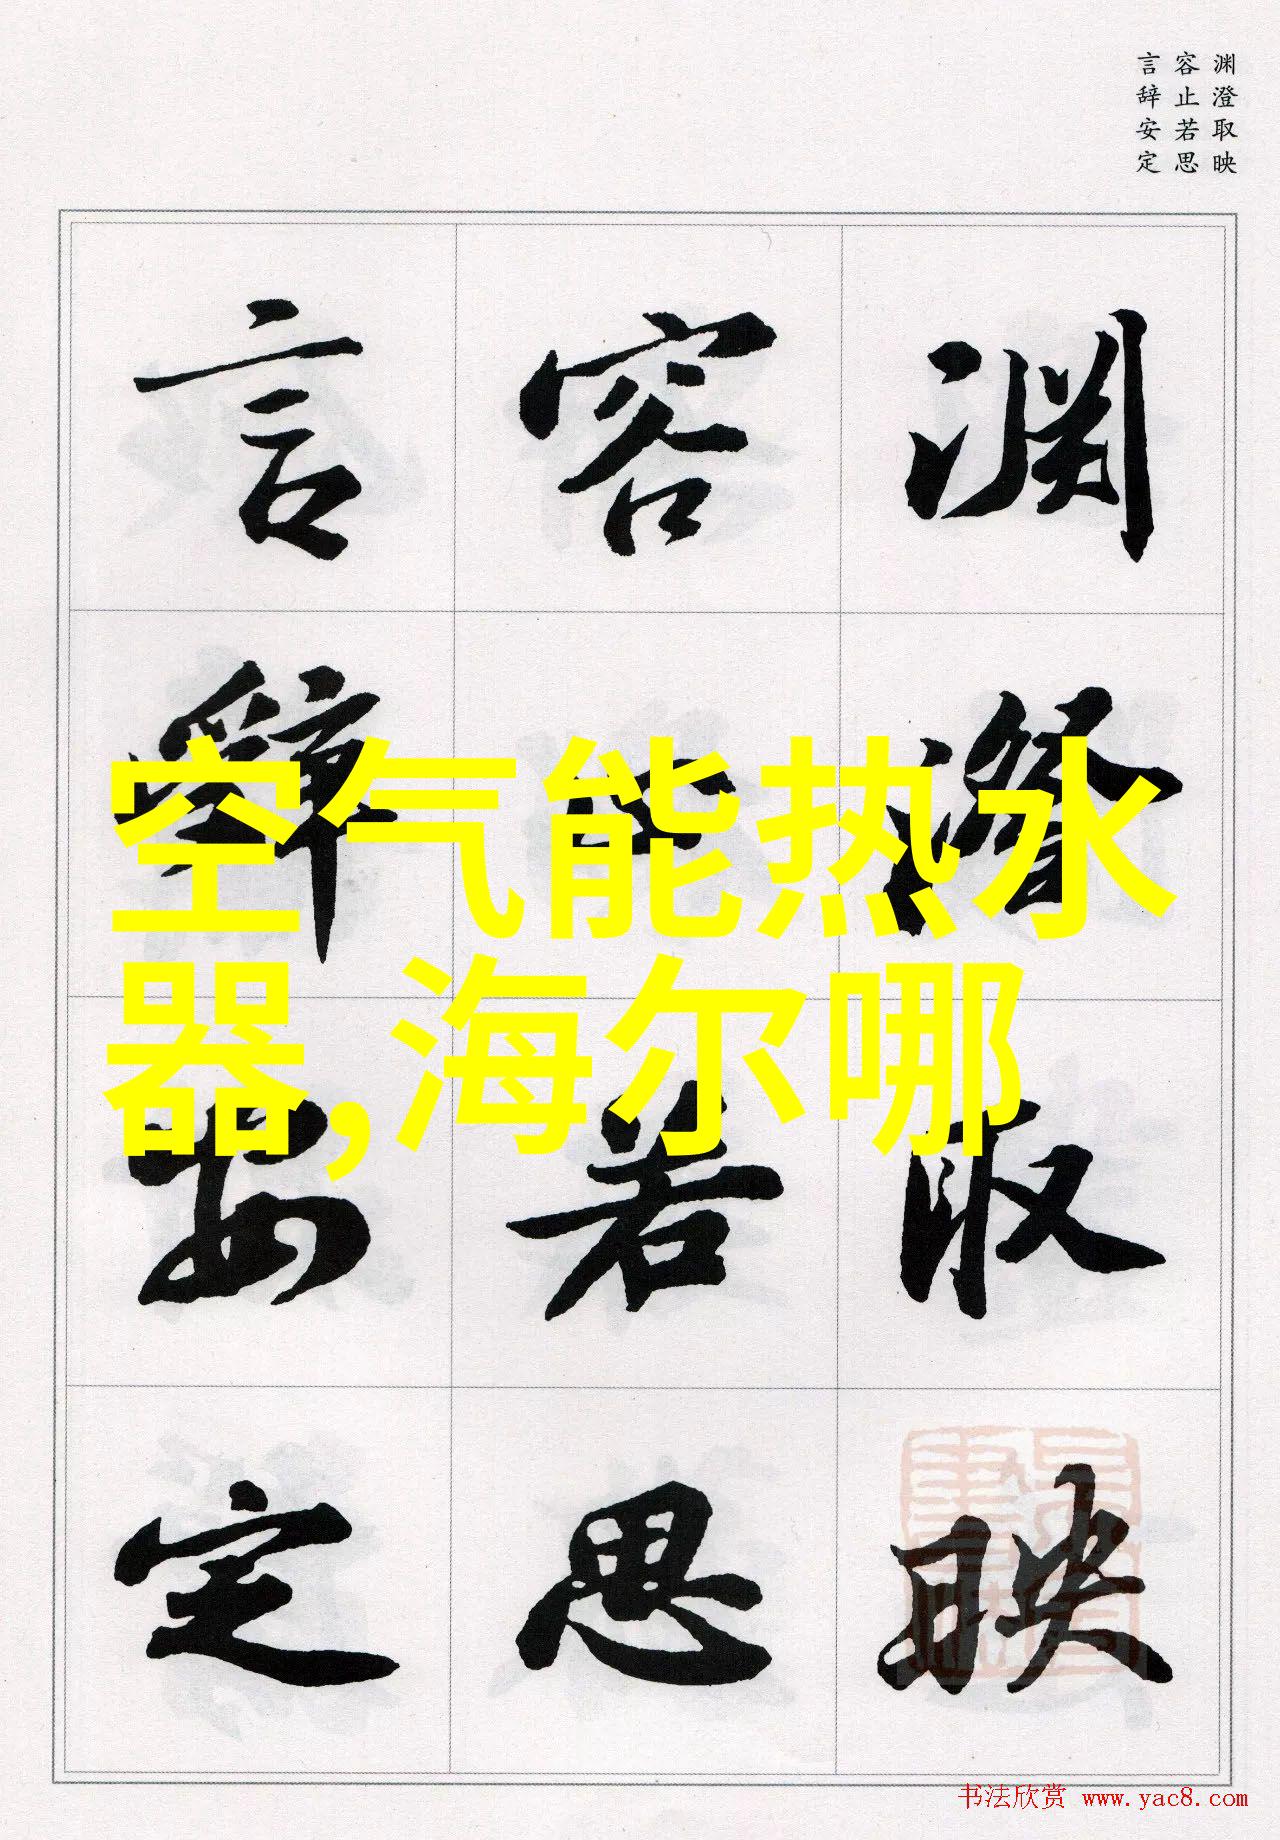 渊澄取映
容止若思
言辞安定
渊澄取映
容止若思
言辭安定
空气能热水
器,海尔哪
书法欣赏 www.yac8.com